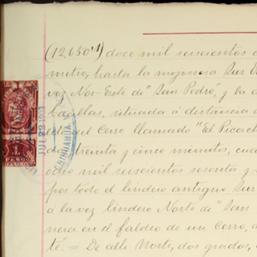 (12,650 m) doce mil seiscientos c
metros, hasta la mojonera Sur O
vez Nor-Este de "San Pedro," y la d
bajillas, situada á distancia d
del Cerro llamado "El Picach
treinta y cinco minutos, cua
ocho mil seiscientos sesenta y
por todo el lindero antiguo Sur
á la vez lindero Norte de "San
nera en el faldeo de un cerro, a
te. — De alli Norte, dos grados, c